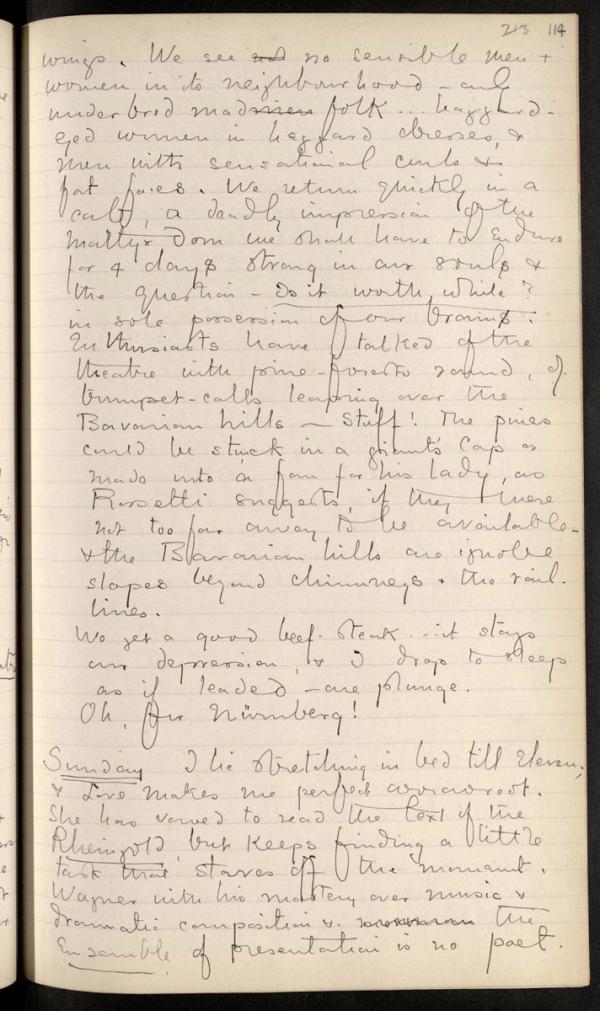 213 114
wings. We see no sensible men +
women in its neighbourhood – only
underbred mad folk ... haggard-
eyed women in haggard dresses, &
men with sensational curls &
fat faces. We return quickly in a
cab, a deadly impression of the
martyrdom we shall have to endure
for 4 days strong in our souls &
the question – Is it worth while?
in sole possession of our brains.
Enthusiasts have talked of the
theatre with pine-forests round, of
trumpet-calls leaping over the
Bavarian hills – Stuff! The pines
could be stuck in a giant's cap or
made into a fan for his lady, as
Rossetti suggests, if they were
not too far away to be available –
& the Bavarian hills are ignoble
slopes beyond chimneys & the rail-
lines.
We get a good beef-steak ... it stays
our depression, & I drop to sleep
as if leaded – one plunge.
Oh, for Nürnberg!
Sunday I lie stretching in bed till Eleven;
& Love makes me perfect arrowroot.
She has vowed to read the text of the
Rheingold, but keeps finding a little
task that staves off the moment.
Wagner with his mastery over music &
dramatic composition & the
Ensemble of presentation is no poet.